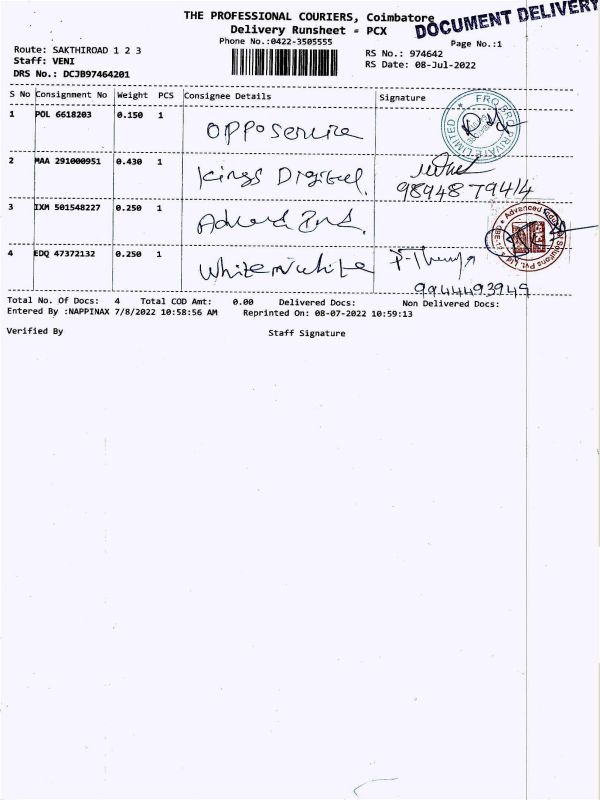 THE PROFESSIONAL COURIERS, Coimbatore
DOCUMENT DELIVERY
Delivery Runsheet - PCX
Phone No.:0422-3505555
Page No.:1
Route: SAKTHIROAD 1 2 3
RS No.: 974642
Staff: VENI
RS Date: 08-Jul-2022
DRS No.: DCJB97464201
S No Consignment No Weight PCS Consignee Details Signature
1 POL 6618203 0.150 1 OPPO Service
PRIVATE LIMITED
2 MAA 291000951 0.430 1 Kings Digital
98948 79414
3 IXM 501548227 0.250 1
Advanced Solutions Pvt. Ltd.
4 EDQ 47372132 0.250 1 White n white
9944493949
Total No. Of Docs: 4 Total COD Amt: 0.00 Delivered Docs: Non Delivered Docs:
Entered By :NAPPINAX 7/8/2022 10:58:56 AM Reprinted On: 08-07-2022 10:59:13
Verified By Staff Signature